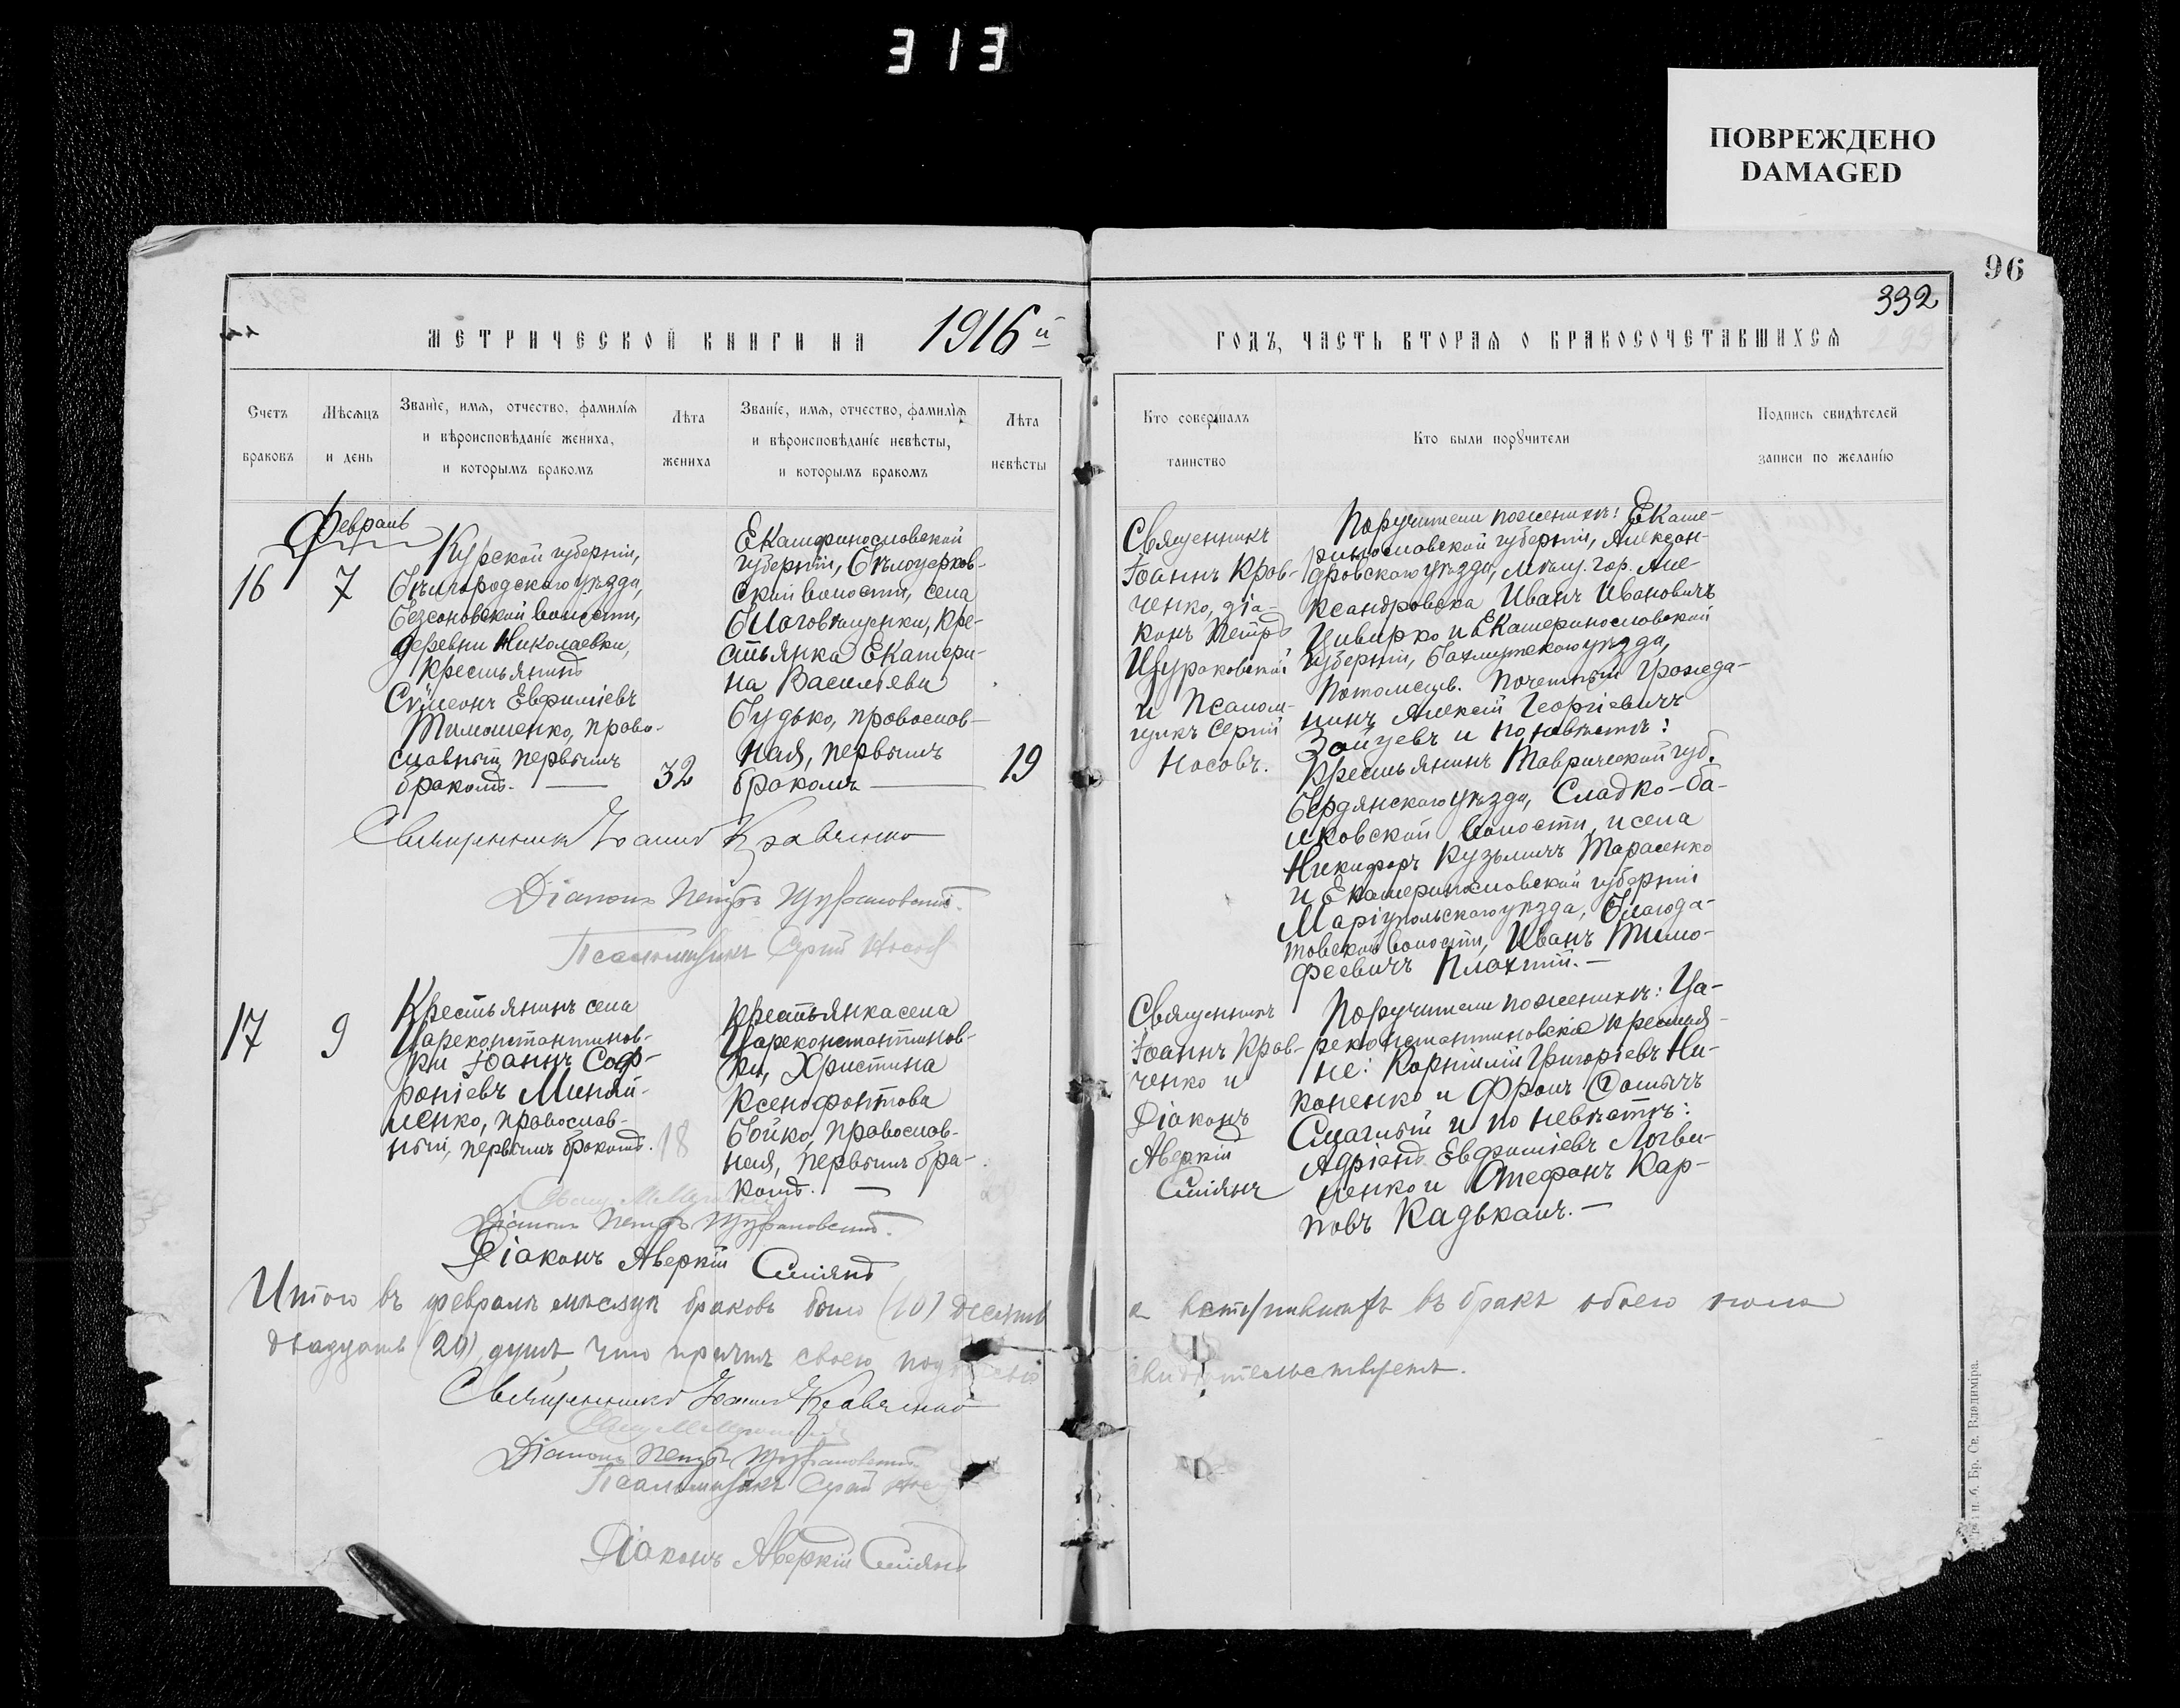 313
ПОВРЕЖДЕНО
DAMAGED
96
332
МЕТРИЧЕСКОЙ КНИГИ НА 1916й
ГОДЪ, ЧАСТЬ ВТОРАЯ О БРАКОСОЧЕТАВШИХСЯ
Счетъ
браковъ
Мѣсяцъ
и день
Званіе, имя, отчество, фамилія
и вѣроисповѣданіе жениха,
и которымъ бракомъ
Лѣта
жениха
Званіе, имя, отчество, фамилія
и вѣроисповѣданіе невѣсты,
и которымъ бракомъ
Лѣта
невѣсты
Кто совершалъ
таинство
Кто были поручители
Подпись свидѣтелей
записи по желанію
Февраль
16
7
Курской губерніи,
Бѣлгородскаго уѣзда,
Безсоновской волости,
деревни Николаевки,
крестьянинъ
Сѵмеонъ Евфиміевъ
Тимошенко, право-
славный, первымъ
бракомъ.
32
Екатеринославской
губерніи, Бѣлоцерков-
ской волости, села
Благовѣщенки, кре-
стьянка Екатери-
на Васильева
Будько, православ-
ная, первымъ
бракомъ
19
Священникъ
Іоаннъ Крав-
ченко, діа-
конъ Петръ
Щураковскій
и Псалом-
щикъ Сергій
Носовъ.
Поручители по женихѣ: Екате-
ринославской губерніи, Алексан-
дровскаго уѣзда, мѣщ. гор. Але-
ксандровска Иванъ Ивановичъ
Цивирко и Екатеринославской
губерніи, Бахмутскаго уѣзда,
Потомств. Почетный Гражда-
нинъ Алексій Георгіевичъ
Зайцевъ и по невѣстѣ:
Крестьянинъ Таврической губ.
Бердянскаго уѣзда, Сладко-ба-
лковской волости и села
Никифоръ Кузьмичъ Тарасенко
и Екатеринославской губерніи
Маріупольскаго уѣзда, Благода-
товской волости, Иванъ Тимо-
феевичъ Плахтій.
Священникъ Іоаннъ Кравченко
Діаконъ Петръ Щураковскій.
Псаломщикъ Сергій Носовъ
17
9
Крестьянинъ села
Цареконстантинов-
ки Іоаннъ Соф-
роніевъ Миняй-
ленко, православ-
ный, первымъ бракомъ.
18
Крестьянка села
Цареконстантинов-
ки, Христина
Ксенофонтова
Бойко, православ-
ная, первымъ бра-
комъ.
Священникъ
Іоаннъ Крав-
ченко и
Діаконъ
Аверкій
Сміянъ
Поручители по женихѣ: Ца-
реконстантиновскіе крестья-
не: Корнилій Григоріевъ Ни-
коненко и Фролъ Ѳомичъ
Смаглый и по невѣстѣ:
Адріанъ Евфиміевъ Логви-
ненко и Стефанъ Кар-
повъ Кадькалъ.
Діаконъ Петръ Щураковскій.
Діаконъ Аверкій Сміянъ
Итого въ февралѣ мѣсяцѣ браковъ было (10) десять а вступившихъ въ бракъ обоего пола
двадцать (20) душъ, что причтъ своею подписью свидѣтельствуетъ.
Священникъ Іоаннъ Кравченко
Діаконъ Петръ Щураковскій
Псаломщикъ Сергій Носовъ
Діаконъ Аверкій Сміянъ
Бр. Св. Владиміра.